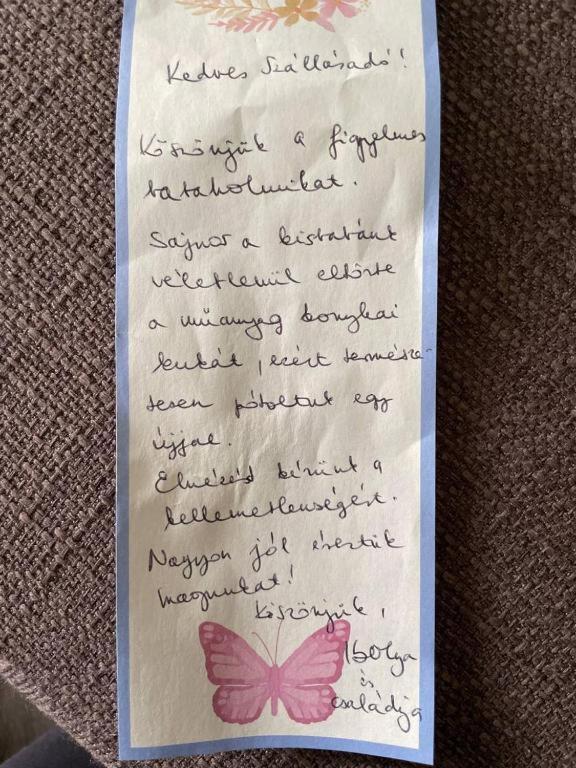 Kedves Szállásadó!
Köszönjük a figyelmes
bataholmikat.
Sajnos a kisbabánk
véletlenül eltörte
a műanyag konyhai
kukát, ezért természe-
tesen pótoltuk egy
újjal.
Elnézést kérünk a
kellemetlenségért.
Nagyon jól éreztük
magunkat!
Köszönjük,
Ibolya
és
családja